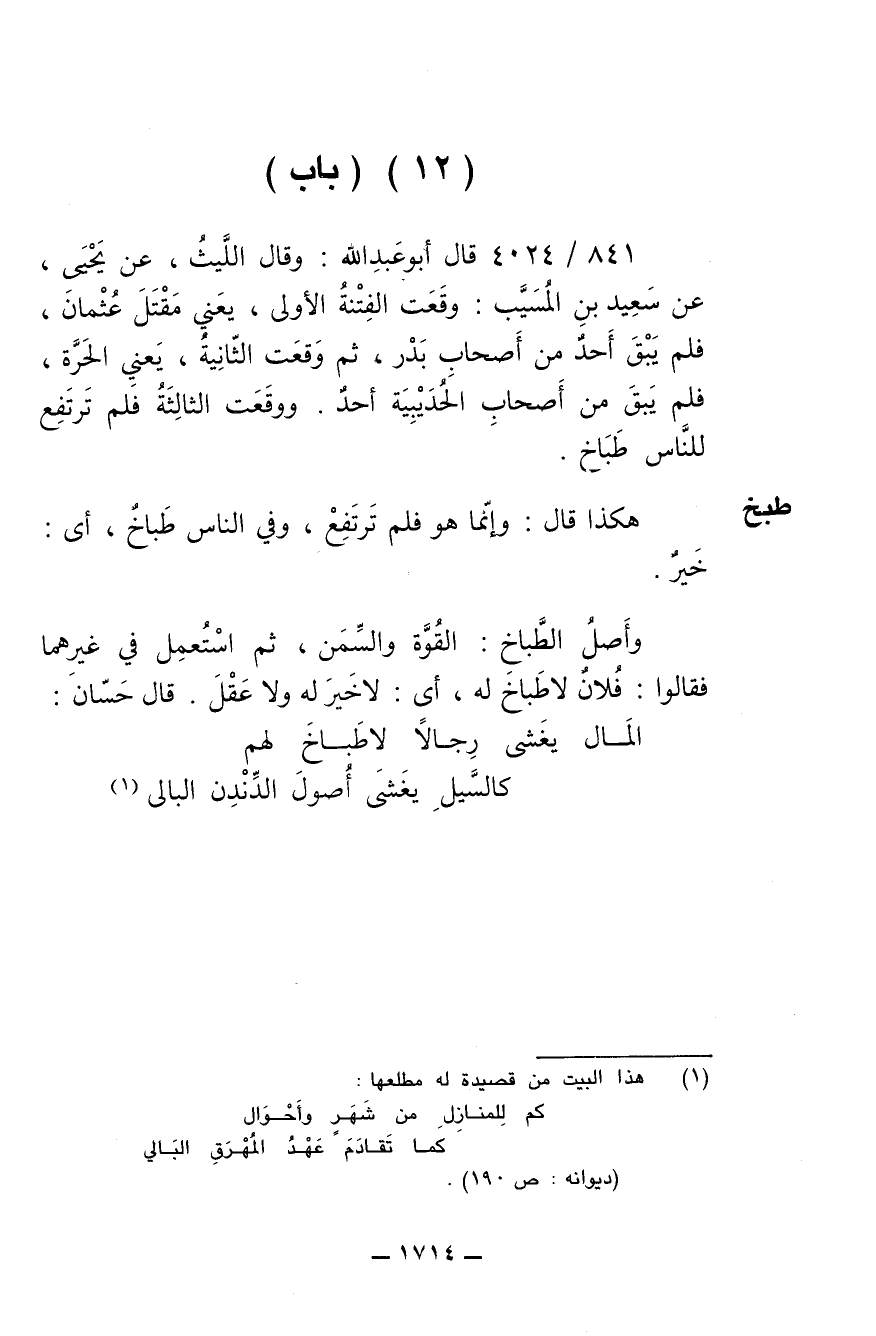 ( ١٢ ) ( باب )
٨٤١ / ٤٠٢٤ قال أبوعَبدِالله : وقال اللَّيثُ ، عن يَحْيَى ،
عن سَعِيد بنِ المُسَيَّب : وقَعَت الفِتْنةُ الأولى ، يعَني مَقْتَلَ عُثْمانَ ،
فلم يَبْقَ أَحدٌ من أَصحابِ بَدْر ، ثم وَقعَت الثّانِيةُ ، يَعني الحَرَّة ،
فلم يَبقَ من أَصحابِ الحُدَيْبِيَة أحدٌ . ووقَعَت الثالِثَةُ فَلم تَرتَفِع
للنَّاس طَبَاخ .
طبخ
هكذا قال : وإنّما هو فلم تَرتَفِعْ ، وفي الناس طَباخٌ ، أى :
خَيرٌ .
وأَصلُ الطَّباخ : القُوَّة والسِّمَن ، ثم اسْتُعمِل في غيرهما
فقالوا : فُلانٌ لاطَباخَ له ، أى : لاخَيرَ له ولا عَقْلَ . قال حَسّانَ :
المَـال يغَشى رِجـالاً لاطَبـاخَ لهم
كالسَّيلِ يغَشىَ أُصولَ الدِّنْدِن البالى (١)
(١) هذا البيت من قصيدة له مطلعها :
كم لِلمنـازِلِ من شَهَـرٍ وأَحْـوَال
كمـا تَقـادَمَ عَهْـدُ المُهْـرَقِ البَـالي
(ديوانه : ص ١٩٠) .
ــ ١٧١٤ ــ